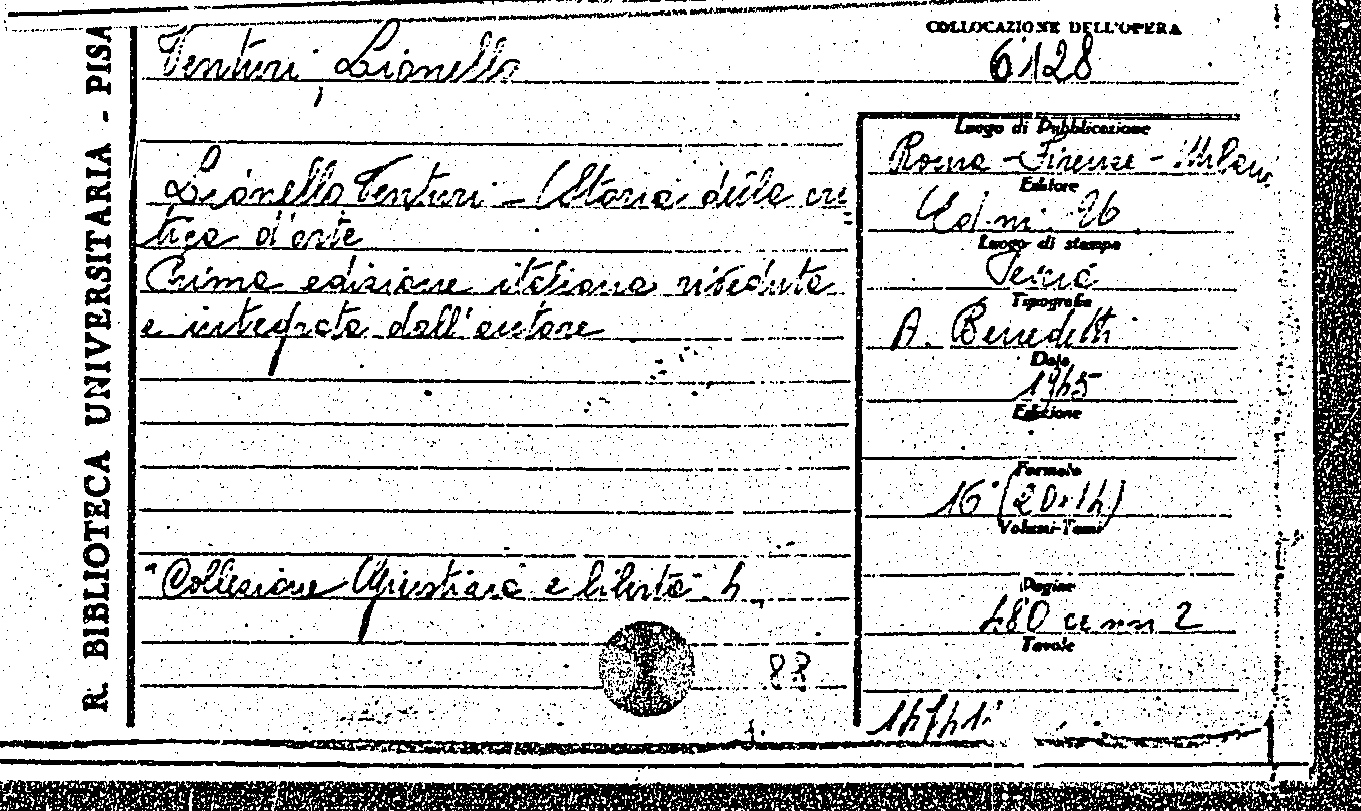 R. BIBLIOTECA UNIVERSITARIA - PISA
COLLOCAZIONE DELL'OPERA
6128
Venturi, Lionello
Lionello Venturi - Storia della cri=
tica d'arte
Prima edizione italiana riveduta
e integrata dall'autore
"Collezione Giustizia e libertà. 4
83
Luogo di Pubblicazione
Roma - Firenze - Milano
Editore
Ed.ni
Luogo di stampa
Tipografia
A. Benedetti
Data
1945
Edizione
Formato
16° (20×14)
Volumi-Tomi
Pagine
480 ce nn 2
Tavole